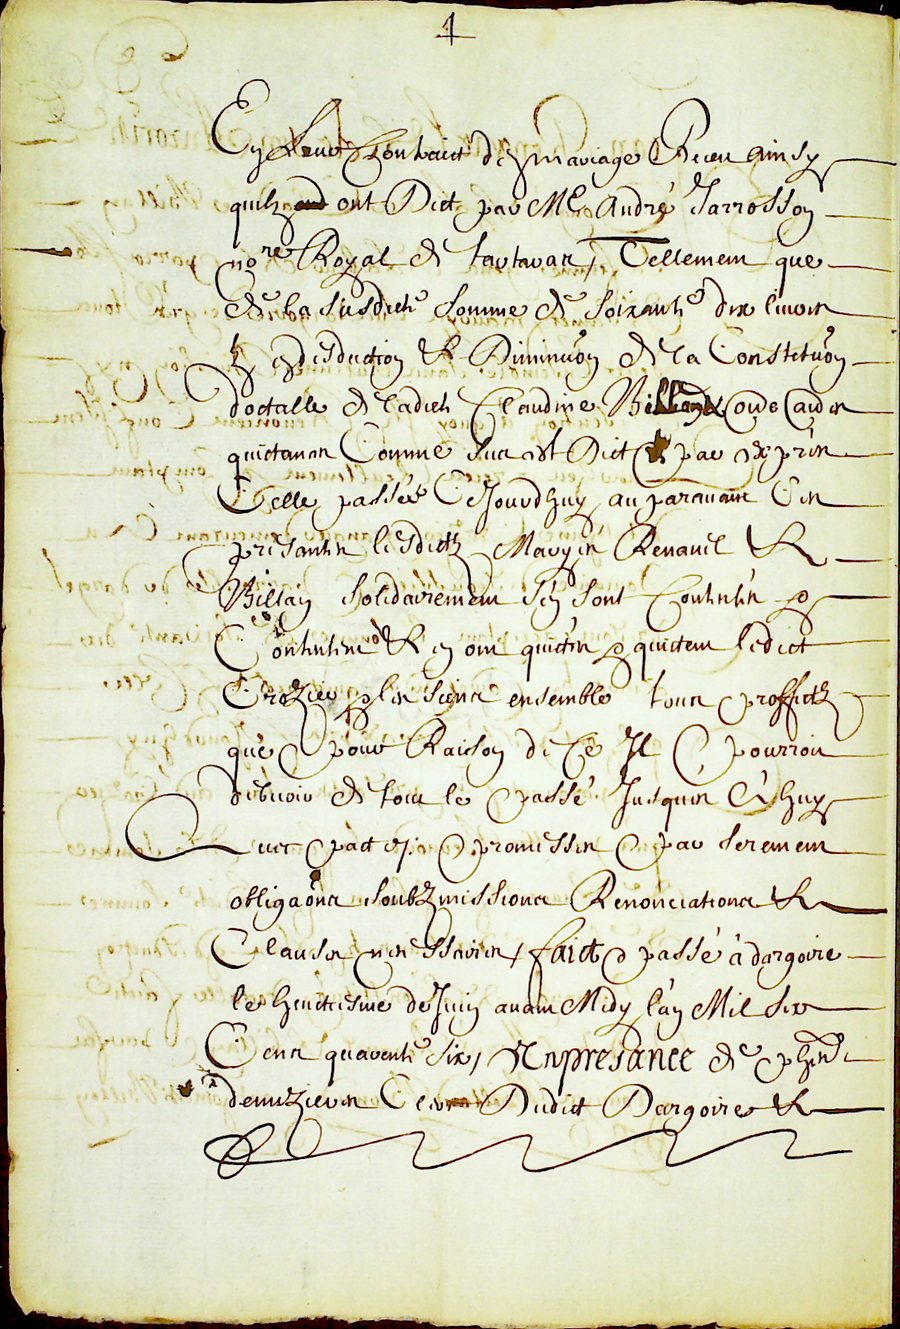 4
En leur Contraict de mariage Receu ainsy
quilz ont Dict par Me André Jarrosson
nore Royal de Tartaras, Tellement que
de la susdicte somme de soixante dix livres
& en desduction & Diminuon de la Constituon
doctalle de ladicte Claudine Billay
quictances Comme sus est Dict par
Celle passée Cejourdhuy auparavant Ces
presantes lesdictz Maryés Renauel &
Billay solidairement sen sont Contentés &
Contentent & en ont quictés & quictent ledict
Crozier & les siens ensemble tous proffictz
que pour Raison de Ce Il pourroit
debvoir de tout le passé Jusques à huy
Avec pact promesses par serement
obligaons soubzmissions Renonciations &
Clauses necessaires, faict & passé à dargoire
le huictiesme de Juin avant Midy lan Mil six
Cens quarente six, En presance de
Dudict Dargoire &